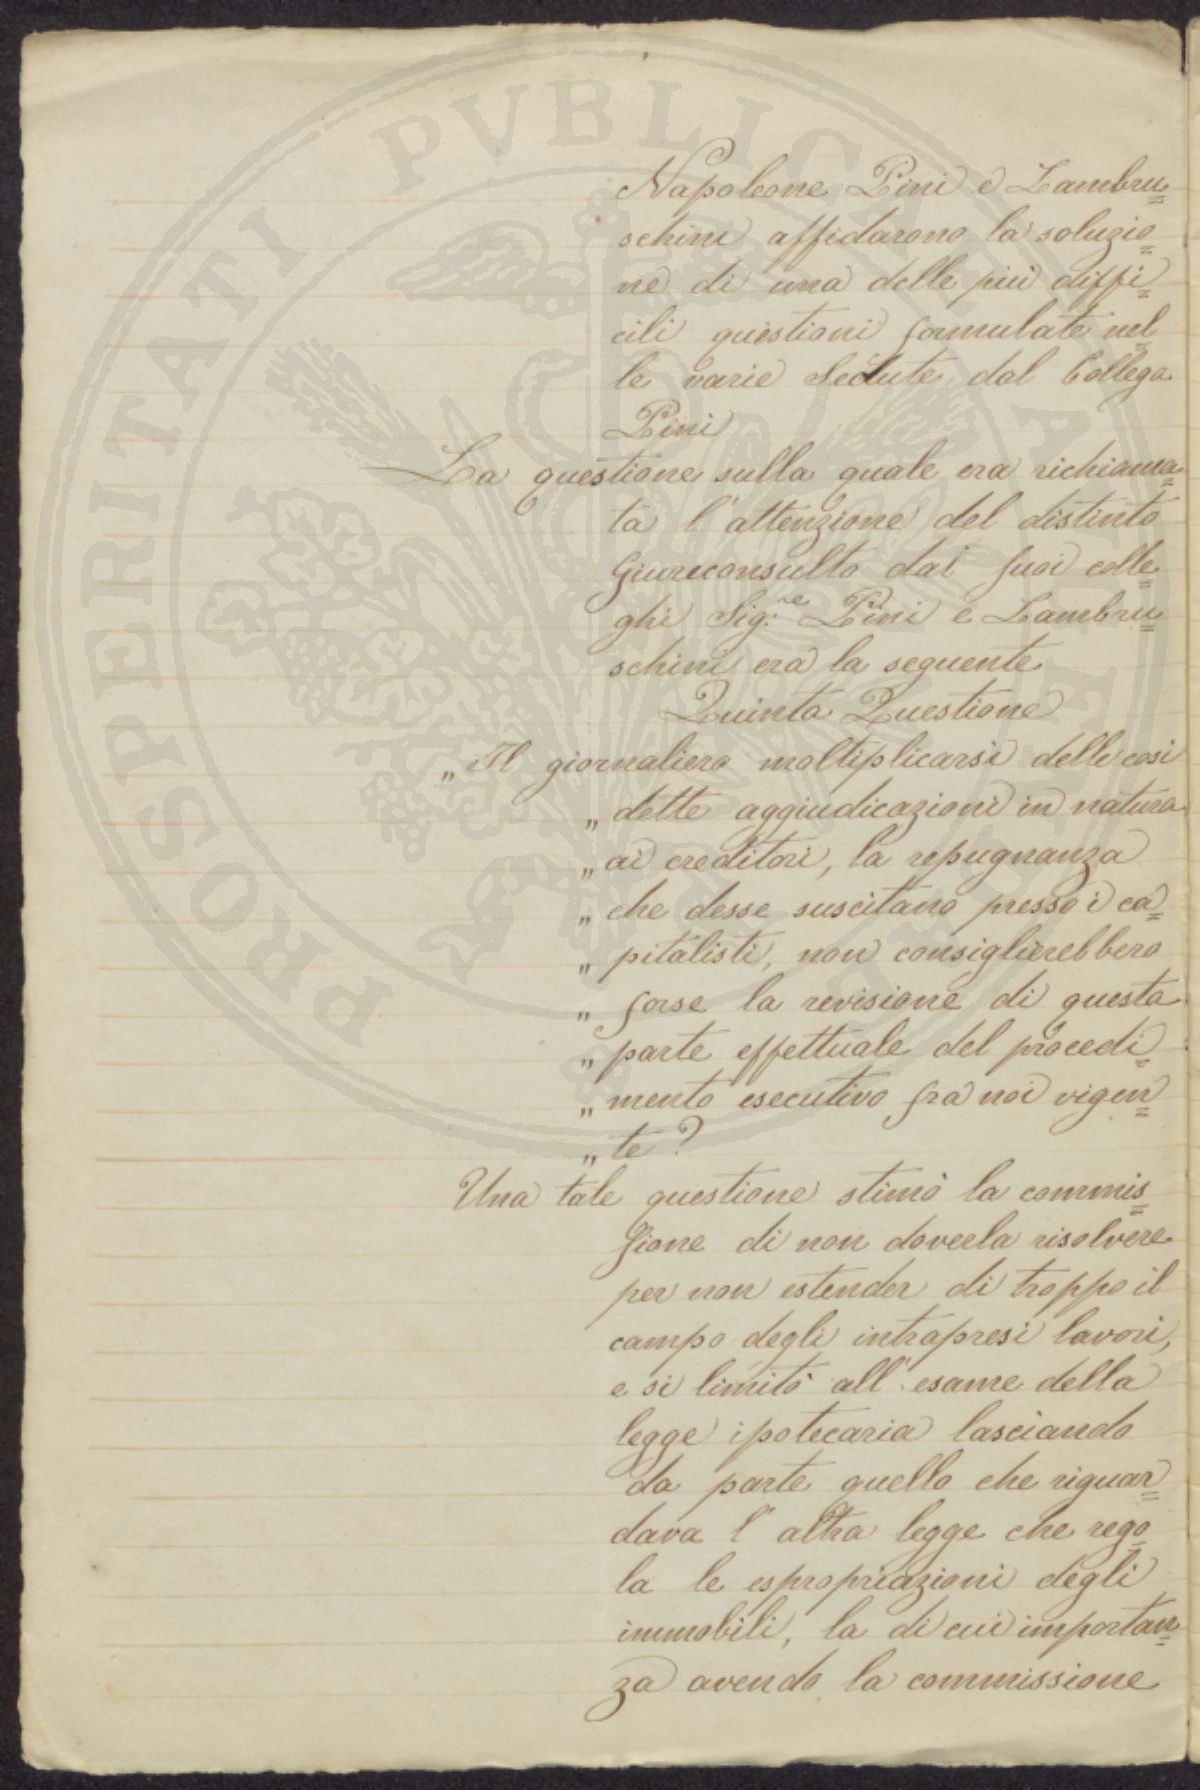 Napoleone Pini e Lambru=
schini affidarono la soluzio=
ne di una delle più diffi=
cili questioni formulate nel=
le varie Sedute dal Collega
Pini
La questione sulla quale era richiama=
ta l'attenzione del distinto
Giureconsulto dai suoi colle=
ghi Sig.re Pini e Lambru=
schini era la seguente
Quinta Questione
„ Il giornaliero moltiplicarsi delle cosi
„ dette aggiudicazioni in natura
„ ai creditori, la repugnanza
„ che desse suscitano presso i ca=
„ pitalisti, non consiglierebbero
„ forse la revisione di questa
„ parte effettuale del procedi=
„ mento esecutivo fra noi vigen=
„ te?
Una tale questione stimò la commis=
sione di non doverla risolvere
per non estender di troppo il
campo degli intrapresi lavori,
e si limitò all'esame della
legge ipotecaria lasciando
da parte quello che riguar=
dava l'altra legge che rego=
la le espropriazioni degli
immobili, la di cui importan=
za avendo la commissione
PROSPERITATI PVBLICAE AVGENDAE